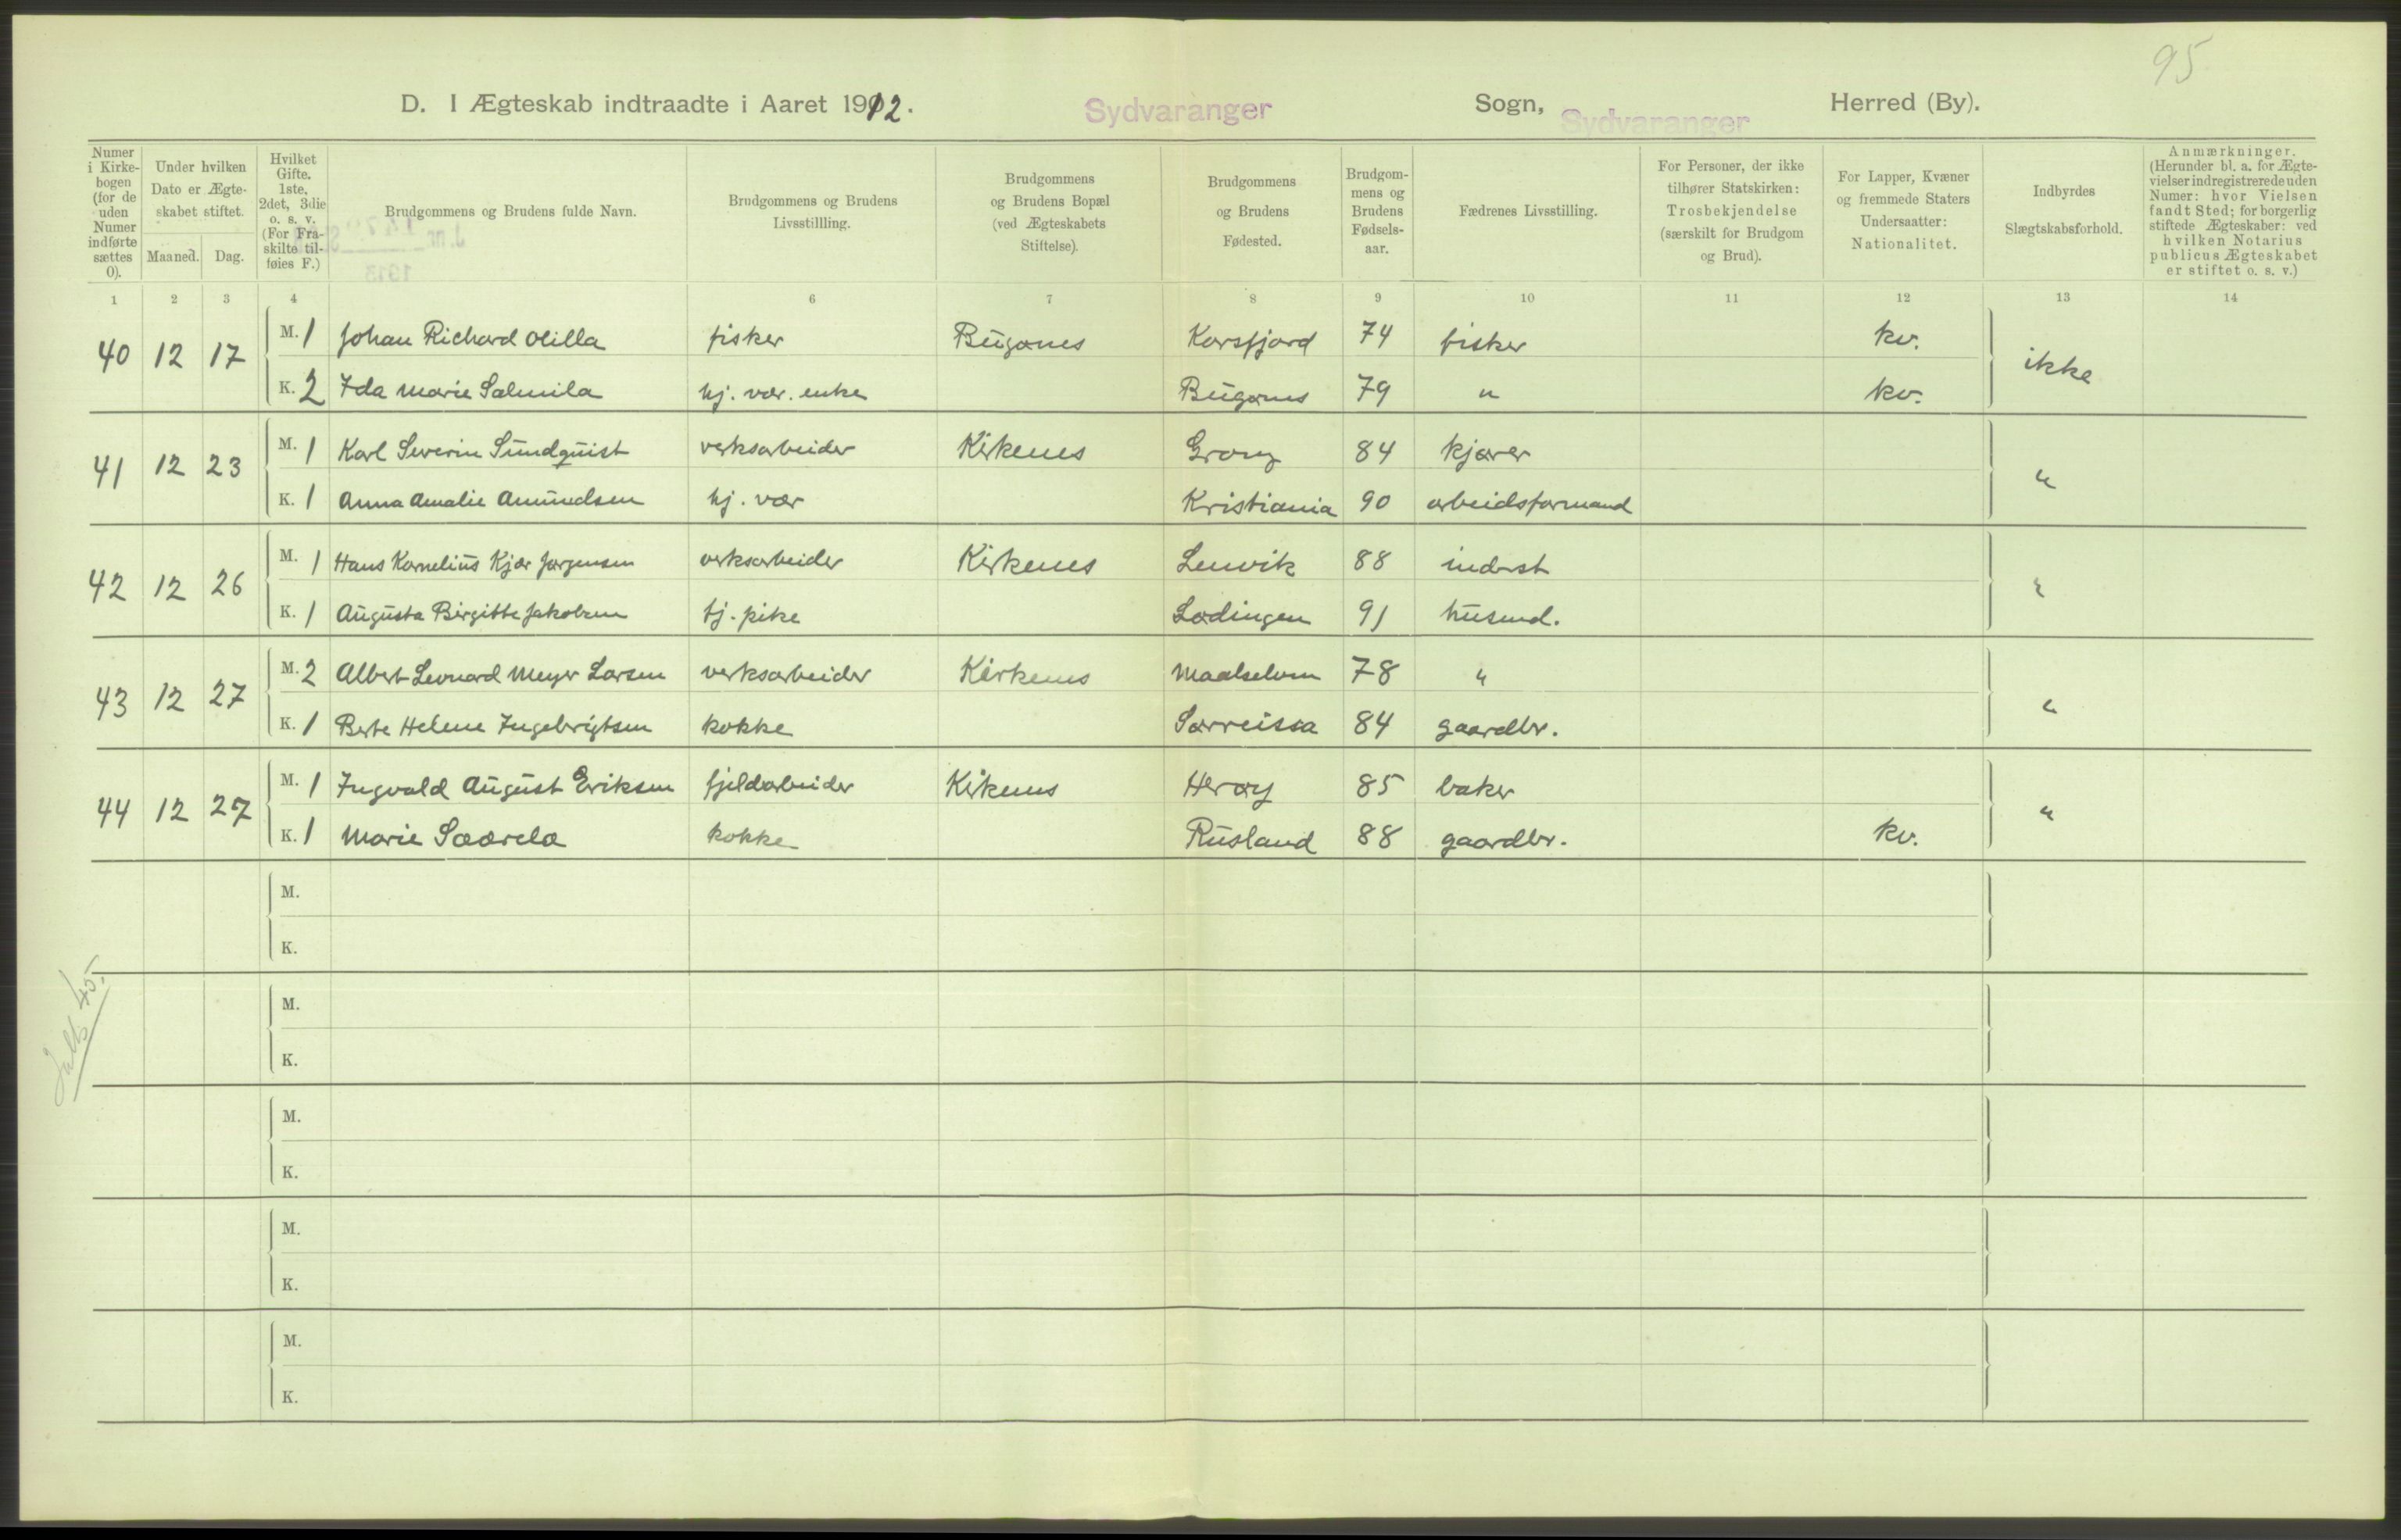 95
D. I Ægteskab indtraadte i Aaret 1912. Sydvaranger Sogn, Sydvaranger Herred (By).
Numer i Kirkebogen (for de uden Numer indførte sættes 0).
Under hvilken Dato er Ægteskabet stiftet.
Maaned. Dag.
Hvilket Gifte. 1ste, 2det, 3die o. s. v. (For Fraskilte tilføies F.)
Brudgommens og Brudens fulde Navn.
Brudgommens og Brudens Livsstillling.
Brudgommens og Brudens Bopæl (ved Ægteskabets Stiftelse).
Brudgommens og Brudens Fødested.
Brudgommens og Brudens Fødselsaar.
Fædrenes Livsstilling.
For Personer, der ikke tilhører Statskirken: Trosbekjendelse (særskilt for Brudgom og Brud).
For Lapper, Kvæner og fremmede Staters Undersaatter: Nationalitet.
Indbyrdes Slægtskabsforhold.
Anmærkninger. (Herunder bl. a. for Ægtevielser indregistrerede uden Numer: hvor Vielsen fandt Sted; for borgerlig stiftede Ægteskaber: ved hvilken Notarius publicus Ægteskabet er stiftet o. s. v.)
1 2 3 4 6 7 8 9 10 11 12 13 14
40 12 17 M. 1 Johan Richard Olilla fisker Bugønes Korsfjord 74 fisker kv. ikke
K. 2 Ida Marie Salmila hj. vær. enke Bugønes 79 " kv.
41 12 23 M. 1 Karl Severin Sundquist verksarbeider Kirkenes Grong 84 kjører "
K. 1 Anna Amalie Amundsen hj. vær Kristiania 90 arbeidsformand
42 12 26 M. 1 Hans Kornelius Kjær Jørgensen verksarbeider Kirkenes Lenvik 88 inderst "
K. 1 Augusta Birgitte Jakobsen tj. pike Lødingen 91 husmd.
43 12 27 M. 2 Albert Leonard Meyer Larsen verksarbeider Kirkenes Maalselven 78 " "
K. 1 Berte Helene Ingebrigtsen kokke Sørreissa 84 gaardbr.
44 12 27 M. 1 Ingvald August Eriksen fjeldarbeider Kirkenes Herøy 85 baker "
K. 1 Marie Saarela kokke Rusland 88 gaardbr. kv.
M.
K.
M.
K.
M.
K.
M.
K.
M.
K.
Ialt 45.